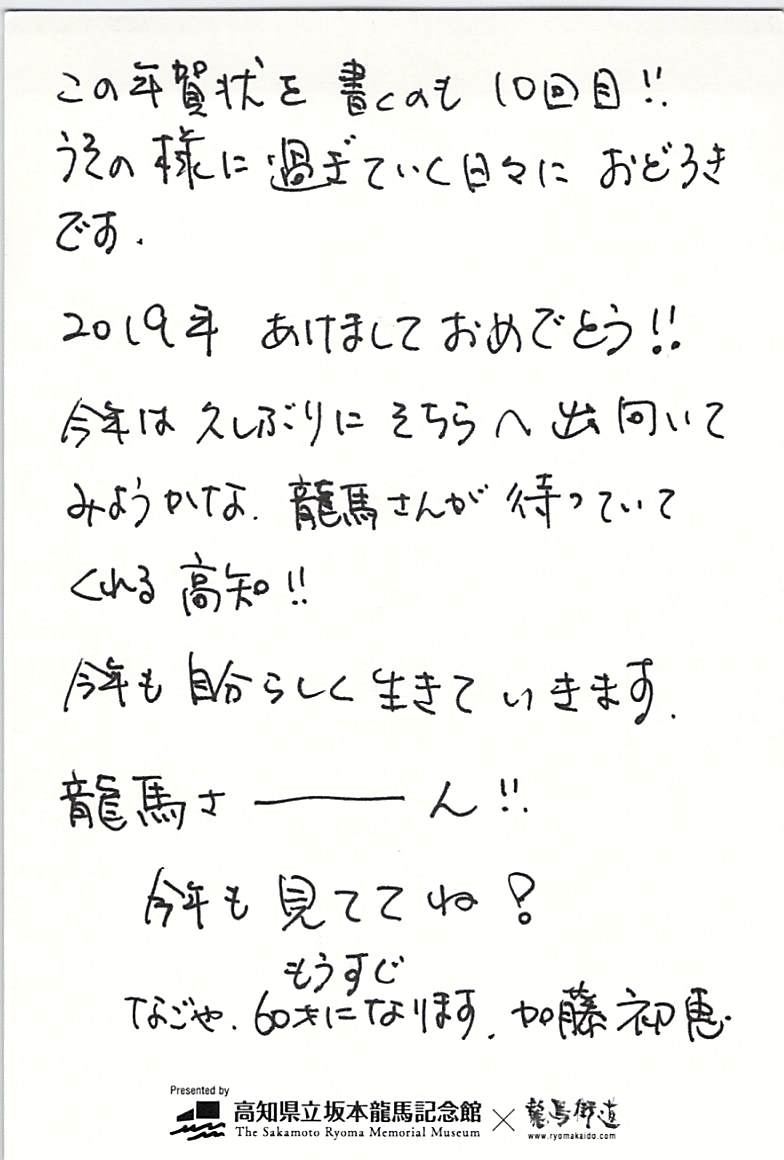 この年賀状を書くのも10回目!!
うその様に過ぎていく日々におどろき
です.
2019年 あけましておめでとう!!
今年は久しぶりにそちらへ出向いて
みようかな. 龍馬さんが待っていて
くれる高知!!
今年も自分らしく生きていきます.
龍馬さ―――ん!!
今年も見ててね?
もうすぐ
なごや. 60才になります. 加藤初恵
Presented by
高知県立坂本龍馬記念館 × 龍馬街道
The Sakamoto Ryoma Memorial Museum
www.ryomakaido.com